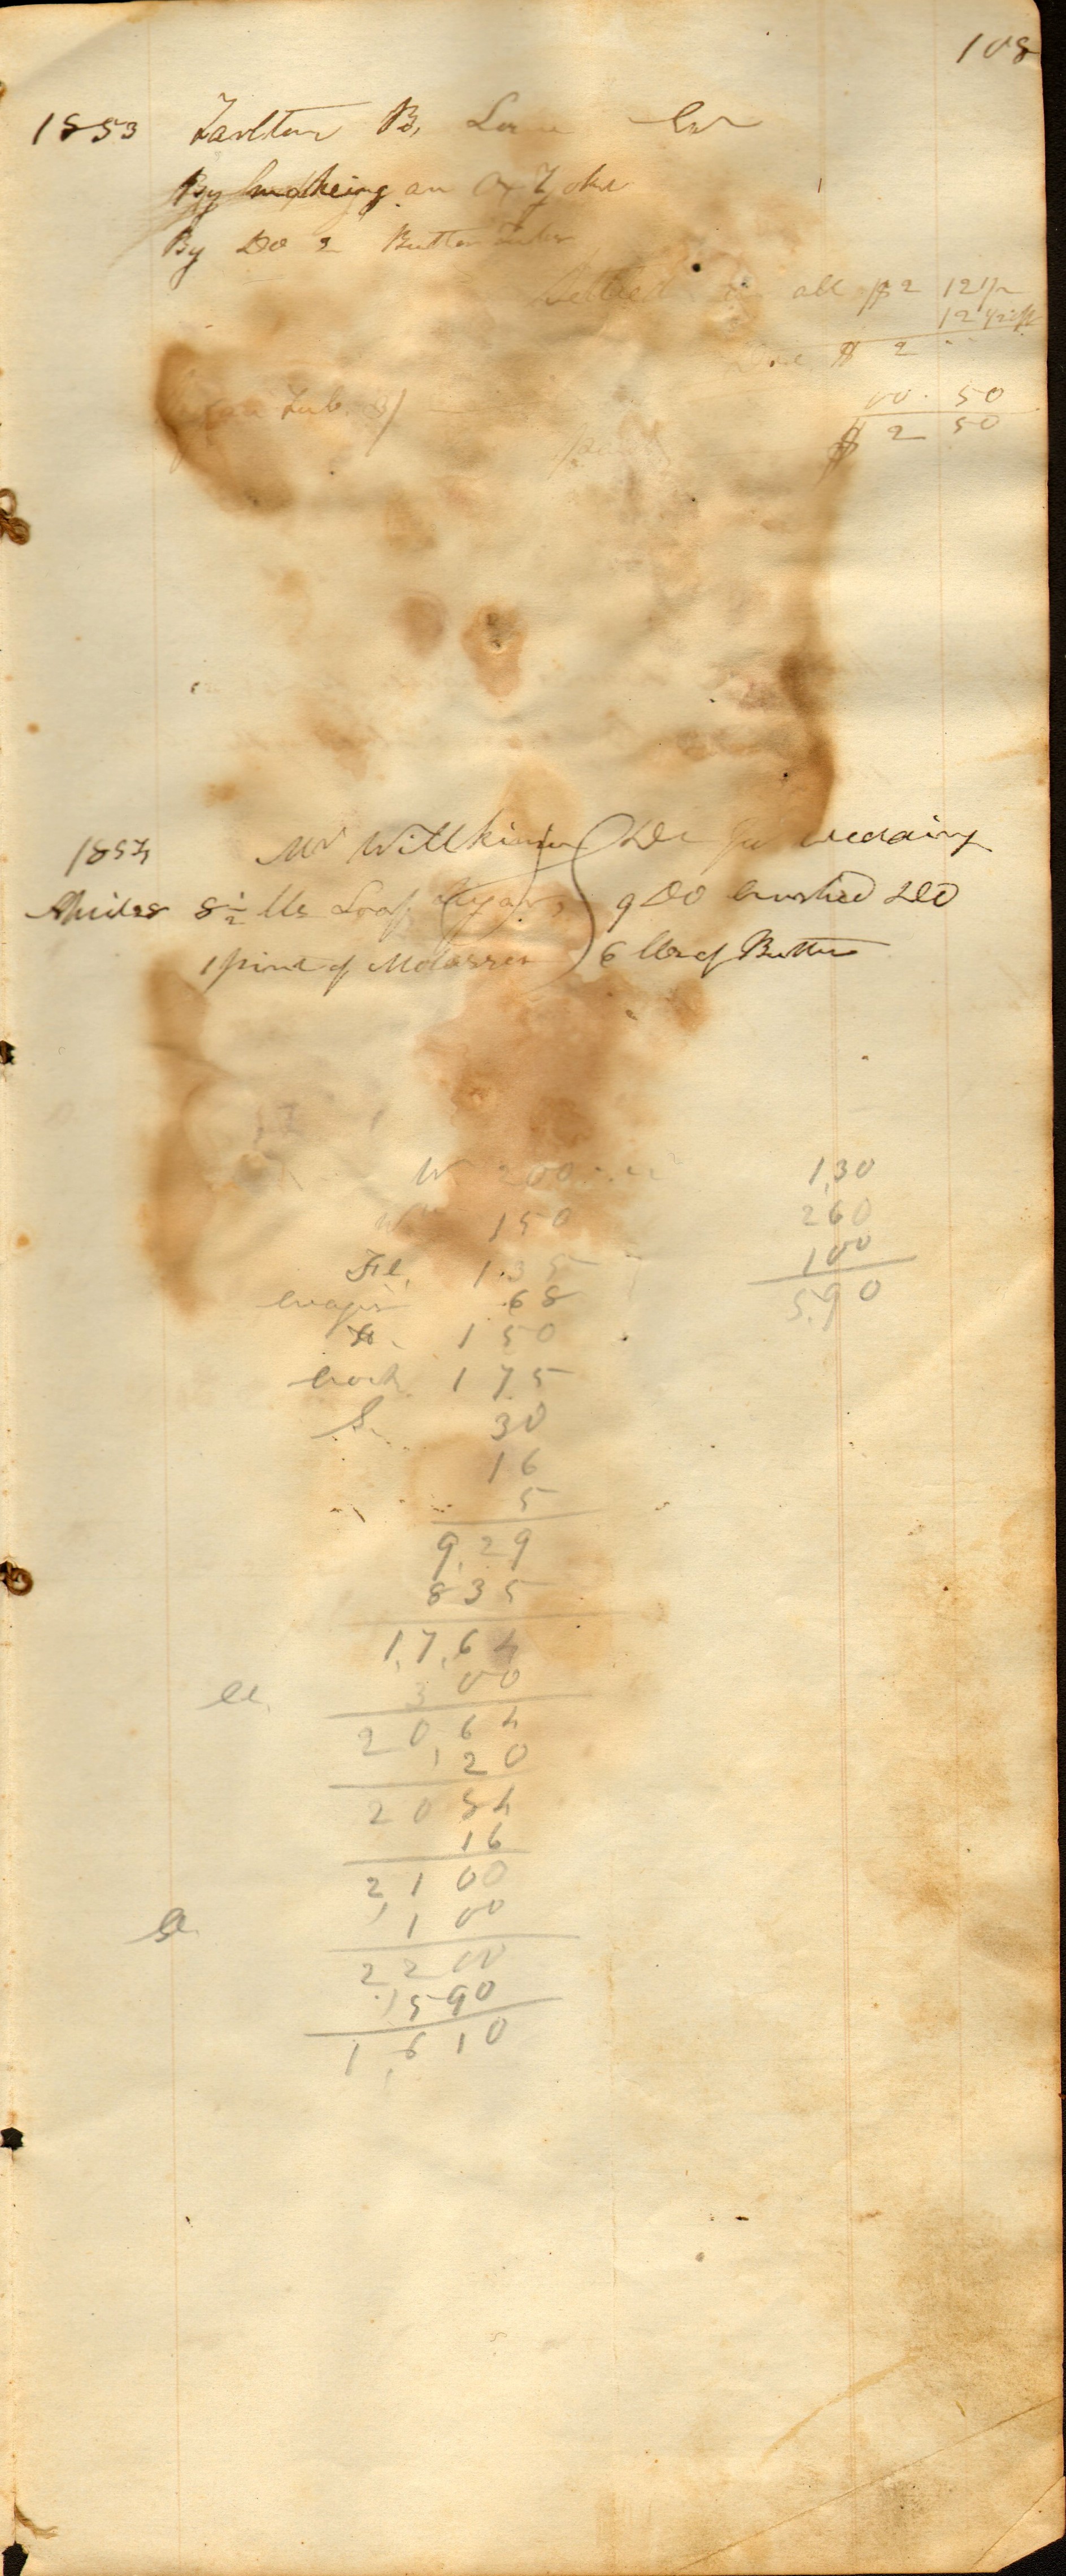 108
1853 Tarlton B. Cr
By making an Ox Yoke
By Do 2 Butter Tubs
Settled all $2 12 1/2
12 1/2
Due $ 2
Tub
00. 50
paid $ 2 50
1854 Mr Willkinson Dr for wedding
8 1/2 lbs Loaf Sugar, 9 Do crushed Do
1 pint of Molasses 6 lbs of Butter
W 200
150
135
68
150
175
S. 30
16
5
9.29
835
17,64
300
20,64
20
20 84
16
21 00
1 00
22 00
590
16 10
1,30
260
100
5.90